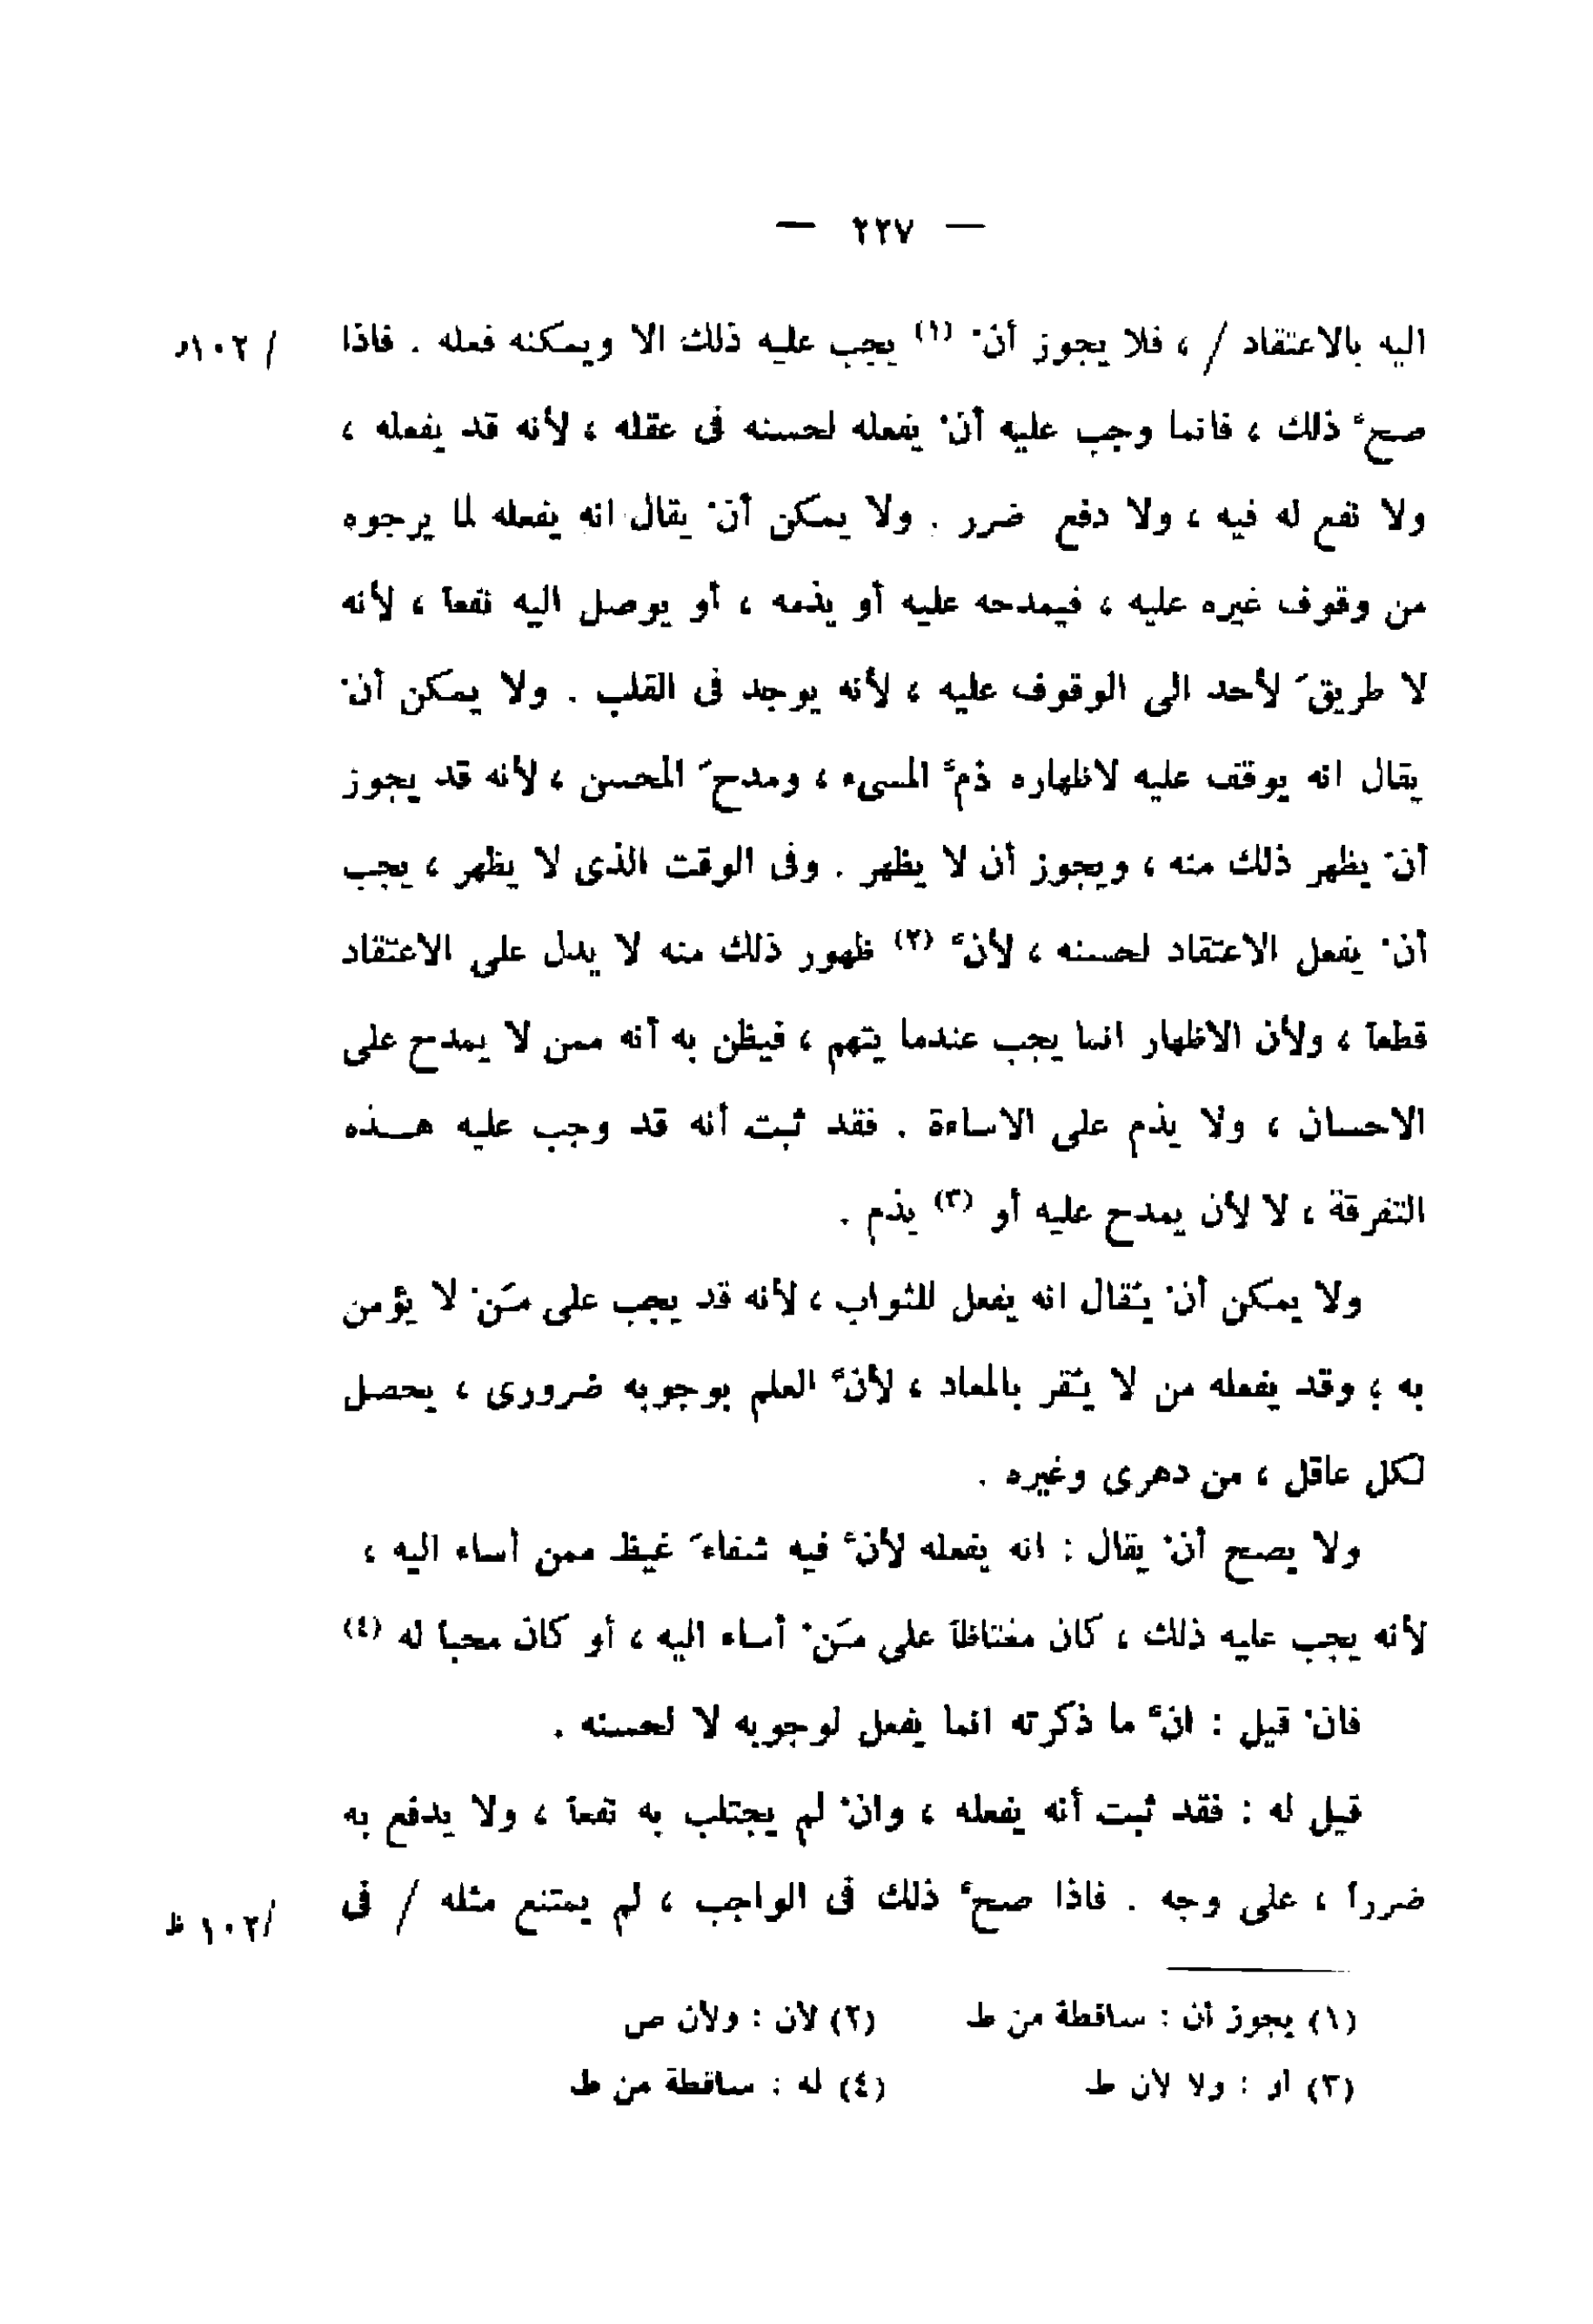 — ٢٢٧ —
اليه بالاعتقاد / ، فلا يجوز أنْ (١) يجب عليه ذلك الا ويمكنه فعله . فاذا / ١٠٢و
صحّ ذلك ، فانما وجب عليه أنْ يفعله لحسنه فى عقله ، لأنه قد يفعله ،
ولا نفع له فيه ، ولا دفع ضرر . ولا يمكن أنْ يقال انه يفعله لما يرجوه
من وقوف غيره عليه ، فيمدحه عليه أو يذمه ، أو يوصل اليه نفعاً ، لأنه
لا طريقَ لأحد الى الوقوف عليه ، لأنه يوجد فى القلب . ولا يمكن أنْ
يقال انه يوقف عليه لاظهاره ذمّ المسىء ، ومدحَ المحسن ، لأنه قد يجوز
أنْ يظهر ذلك منه ، ويجوز أن لا يظهر . وفى الوقت الذى لا يظهر ، يجب
أنْ يفعل الاعتقاد لحسنه ، لأنّ (٢) ظهور ذلك منه لا يدل على الاعتقاد
قطعاً ، ولأن الاظهار انما يجب عندما يتهم ، فيظن به أنه ممن لا يمدح على
الاحسان ، ولا يذم على الاساءة . فقد ثبت أنه قد وجب عليه هـذه
التفرقة ، لا لأن يمدح عليه أو (٣) يذم .
ولا يمكن أنْ يُقال انه يفعل للثواب ، لأنه قد يجب على مَنْ لا يؤمن
به ؛ وقد يفعله من لا يُقر بالمعاد ، لأنّ العلم بوجوبه ضرورى ، يحصل
لكل عاقل ، من دهرى وغيره .
ولا يصح أنْ يقال : انه يفعله لأنّ فيه شفاءَ غيظ ممن أساء اليه ،
لأنه يجب عليه ذلك ، كان مغتاظاً على مَنْ أساء اليه ، أو كان محباً له (٤)
فانْ قيل : انّ ما ذكرته انما يفعل لوجوبه لا لحسنه .
قيل له : فقد ثبت أنه يفعله ، وانْ لم يجتلب به نفعاً ، ولا يدفع به
ضرراً ، على وجه . فاذا صحّ ذلك فى الواجب ، لم يمتنع مثله / فى /١٠٢ ظ
(١) يجوز أن : ساقطة من ط (٢) لأن : ولأن ص
(٣) أو : ولا لأن ط (٤) له : ساقطة من ط